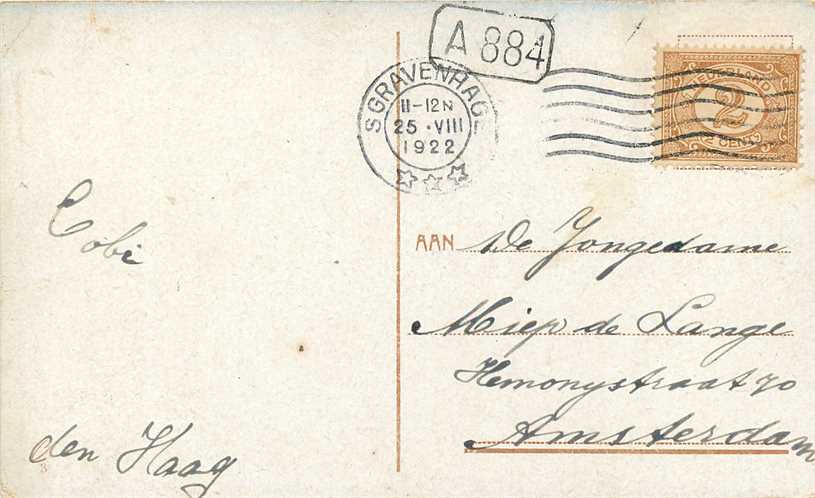 A 884
SGRAVENHAGE
11-12N
25 · VIII
1922
NEDERLAND
2
2 CENT
Cobi
AAN De Jongedame
Miep de Lange
Hemonystraat 70
Amsterdam
den Haag